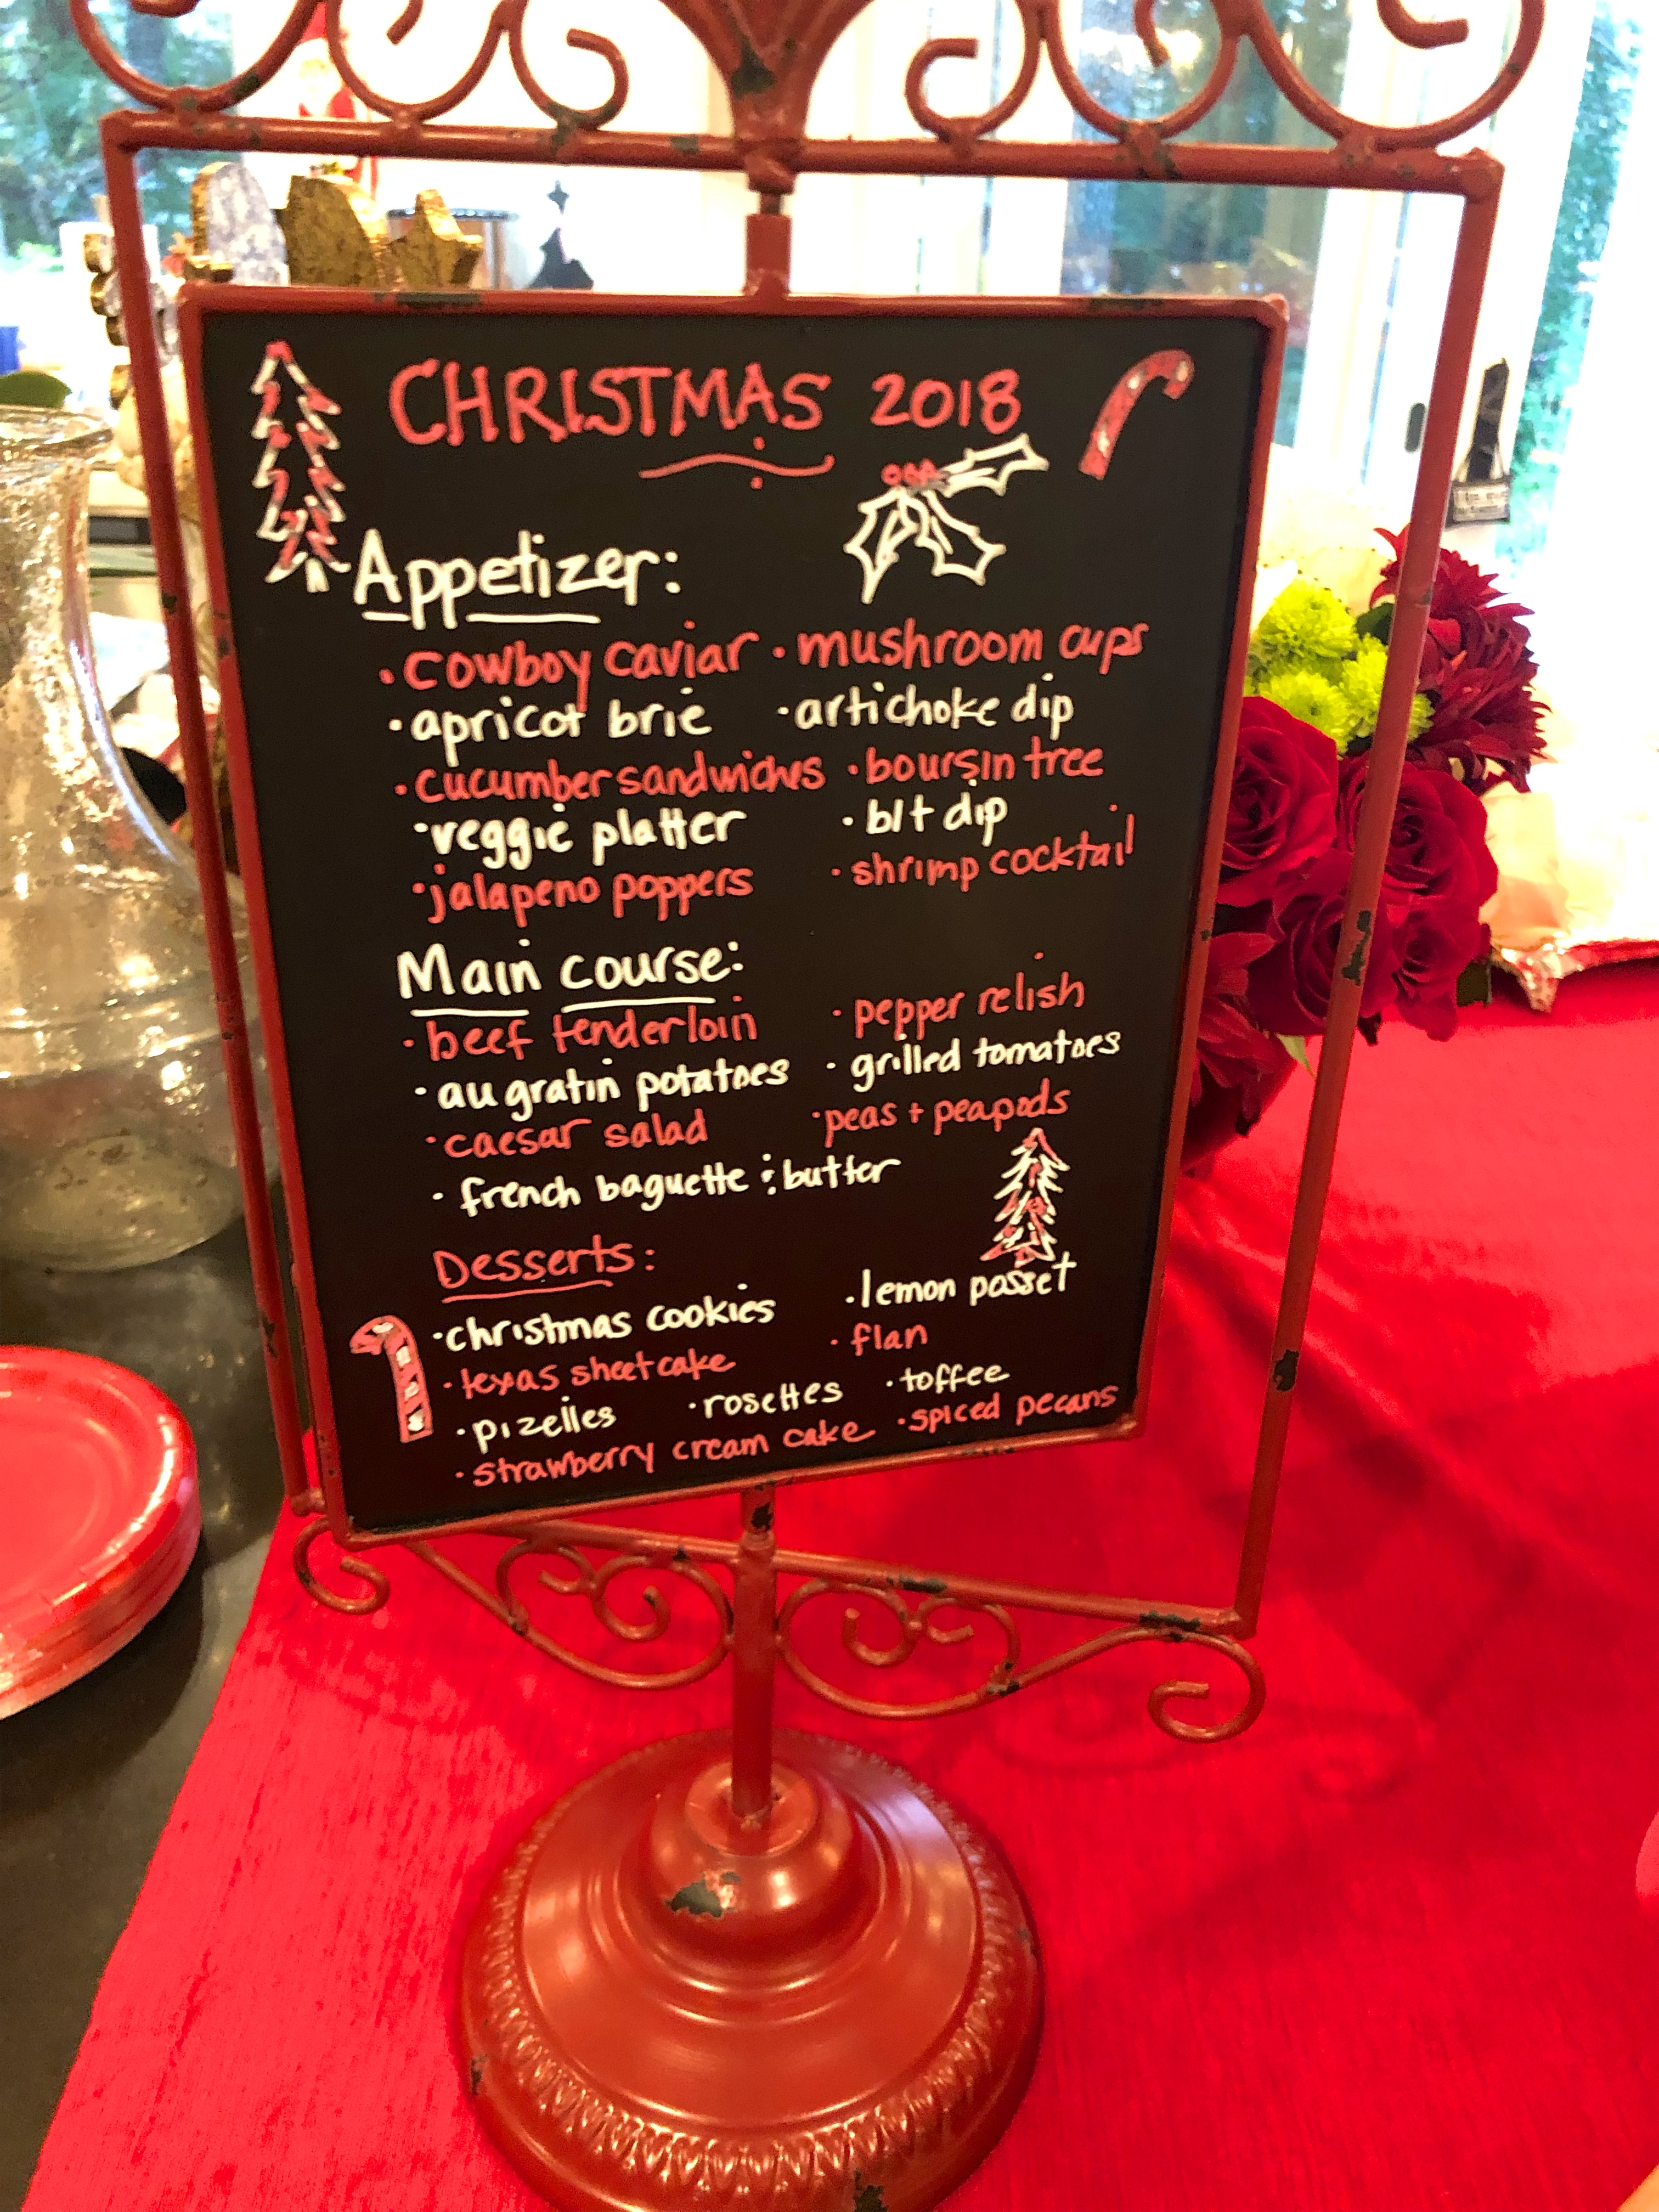 CHRISTMAS 2018
Appetizer:
• cowboy caviar • mushroom cups
• apricot brie • artichoke dip
• cucumber sandwiches • boursin tree
• veggie platter • blt dip
• jalapeno poppers • shrimp cocktail
Main course:
• beef tenderloin • pepper relish
• au gratin potatoes • grilled tomatoes
• caesar salad • peas + peapods
• french baguette & butter
Desserts:
• christmas cookies • lemon posset
• texas sheetcake • flan
• pizelles • rosettes • toffee
• strawberry cream cake • spiced pecans